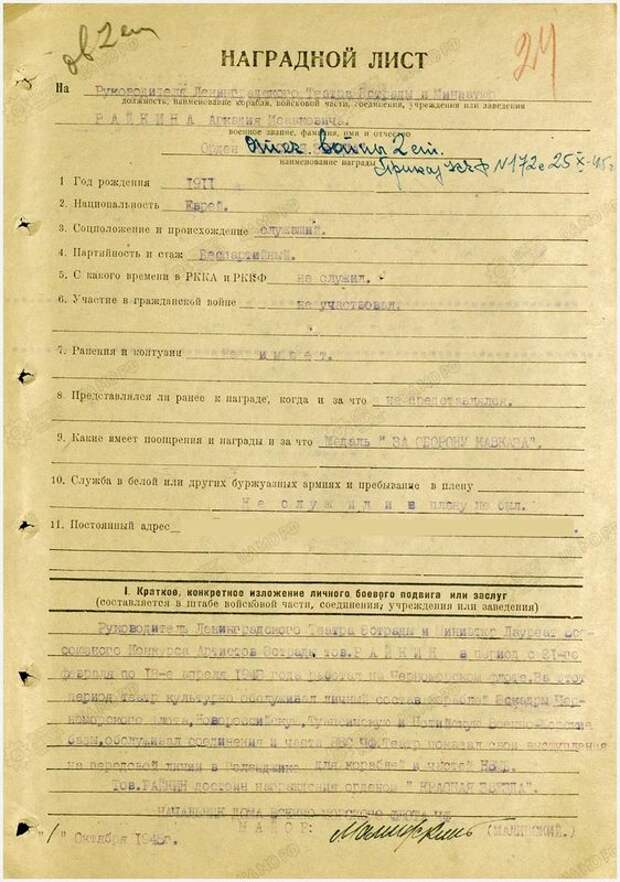 ов 2 ст
24
НАГРАДНОЙ ЛИСТ
На Руководителя Ленинградского Театра Эстрады и Миниатюр
должность, наименование корабля, войсковой части, соединения, учреждения или заведения
Р А Й К И Н А Аркадия Исааковича.
военное звание, фамилия, имя и отчество
Орден Отеч. войны 2 ст.
наименование награды Приказ КЧФ N 172с 25 X-45г
1 Год рождения 1911
2. Национальность Еврей.
3. Соцположение и происхождение служащий.
4. Партийность и стаж Беспартийный.
5. С какого времени в РККА и РККФ не служил.
6. Участие в гражданской войне не участвовал.
7. Ранения и контузии не имеет.
8. Представлялся ли ранее к награде, когда и за что не представлялся.
9. Какие имеет поощрения и награды и за что Медаль " ЗА ОБОРОНУ КАВКАЗА".
10. Служба в белой или других буржуазных армиях и пребывание в плену
Не служил и в плену не был.
11. Постоянный адрес
I. Краткое, конкретное изложение личного боевого подвига или заслуг
(составляется в штабе войсковой части, соединения, учреждения или заведения)
Руководитель Ленинградского Театра Эстрады и Миниатюр Лауреат Все-
союзного Конкурса Артистов Эстрады тов. Р А Й К И Н в период с 21-го
февраля по 18-е апреля года работал на Черноморском флоте. В этот
период Театр культурно обслуживал личный состав кораблей Эскадры Чер-
номорского флота, Новороссийскую, Туапсинскую и Потийскую Военно-Морские
базы, обслуживал соединения и части ВВС ЧФ. Театр показал свои выступления
на передовой линии в Геленджике для кораблей и частей НВМБ.
Тов. РАЙКИН достоин награждения орденом " КРАСНАЯ ЗВЕЗДА".
НАЧАЛЬНИК ДОМА ВОЕННО МОРСКОГО ФЛОТА ЧФ
М А Й О Р: (МАЛИНСКИЙ.)
"1" Октября 1945г.